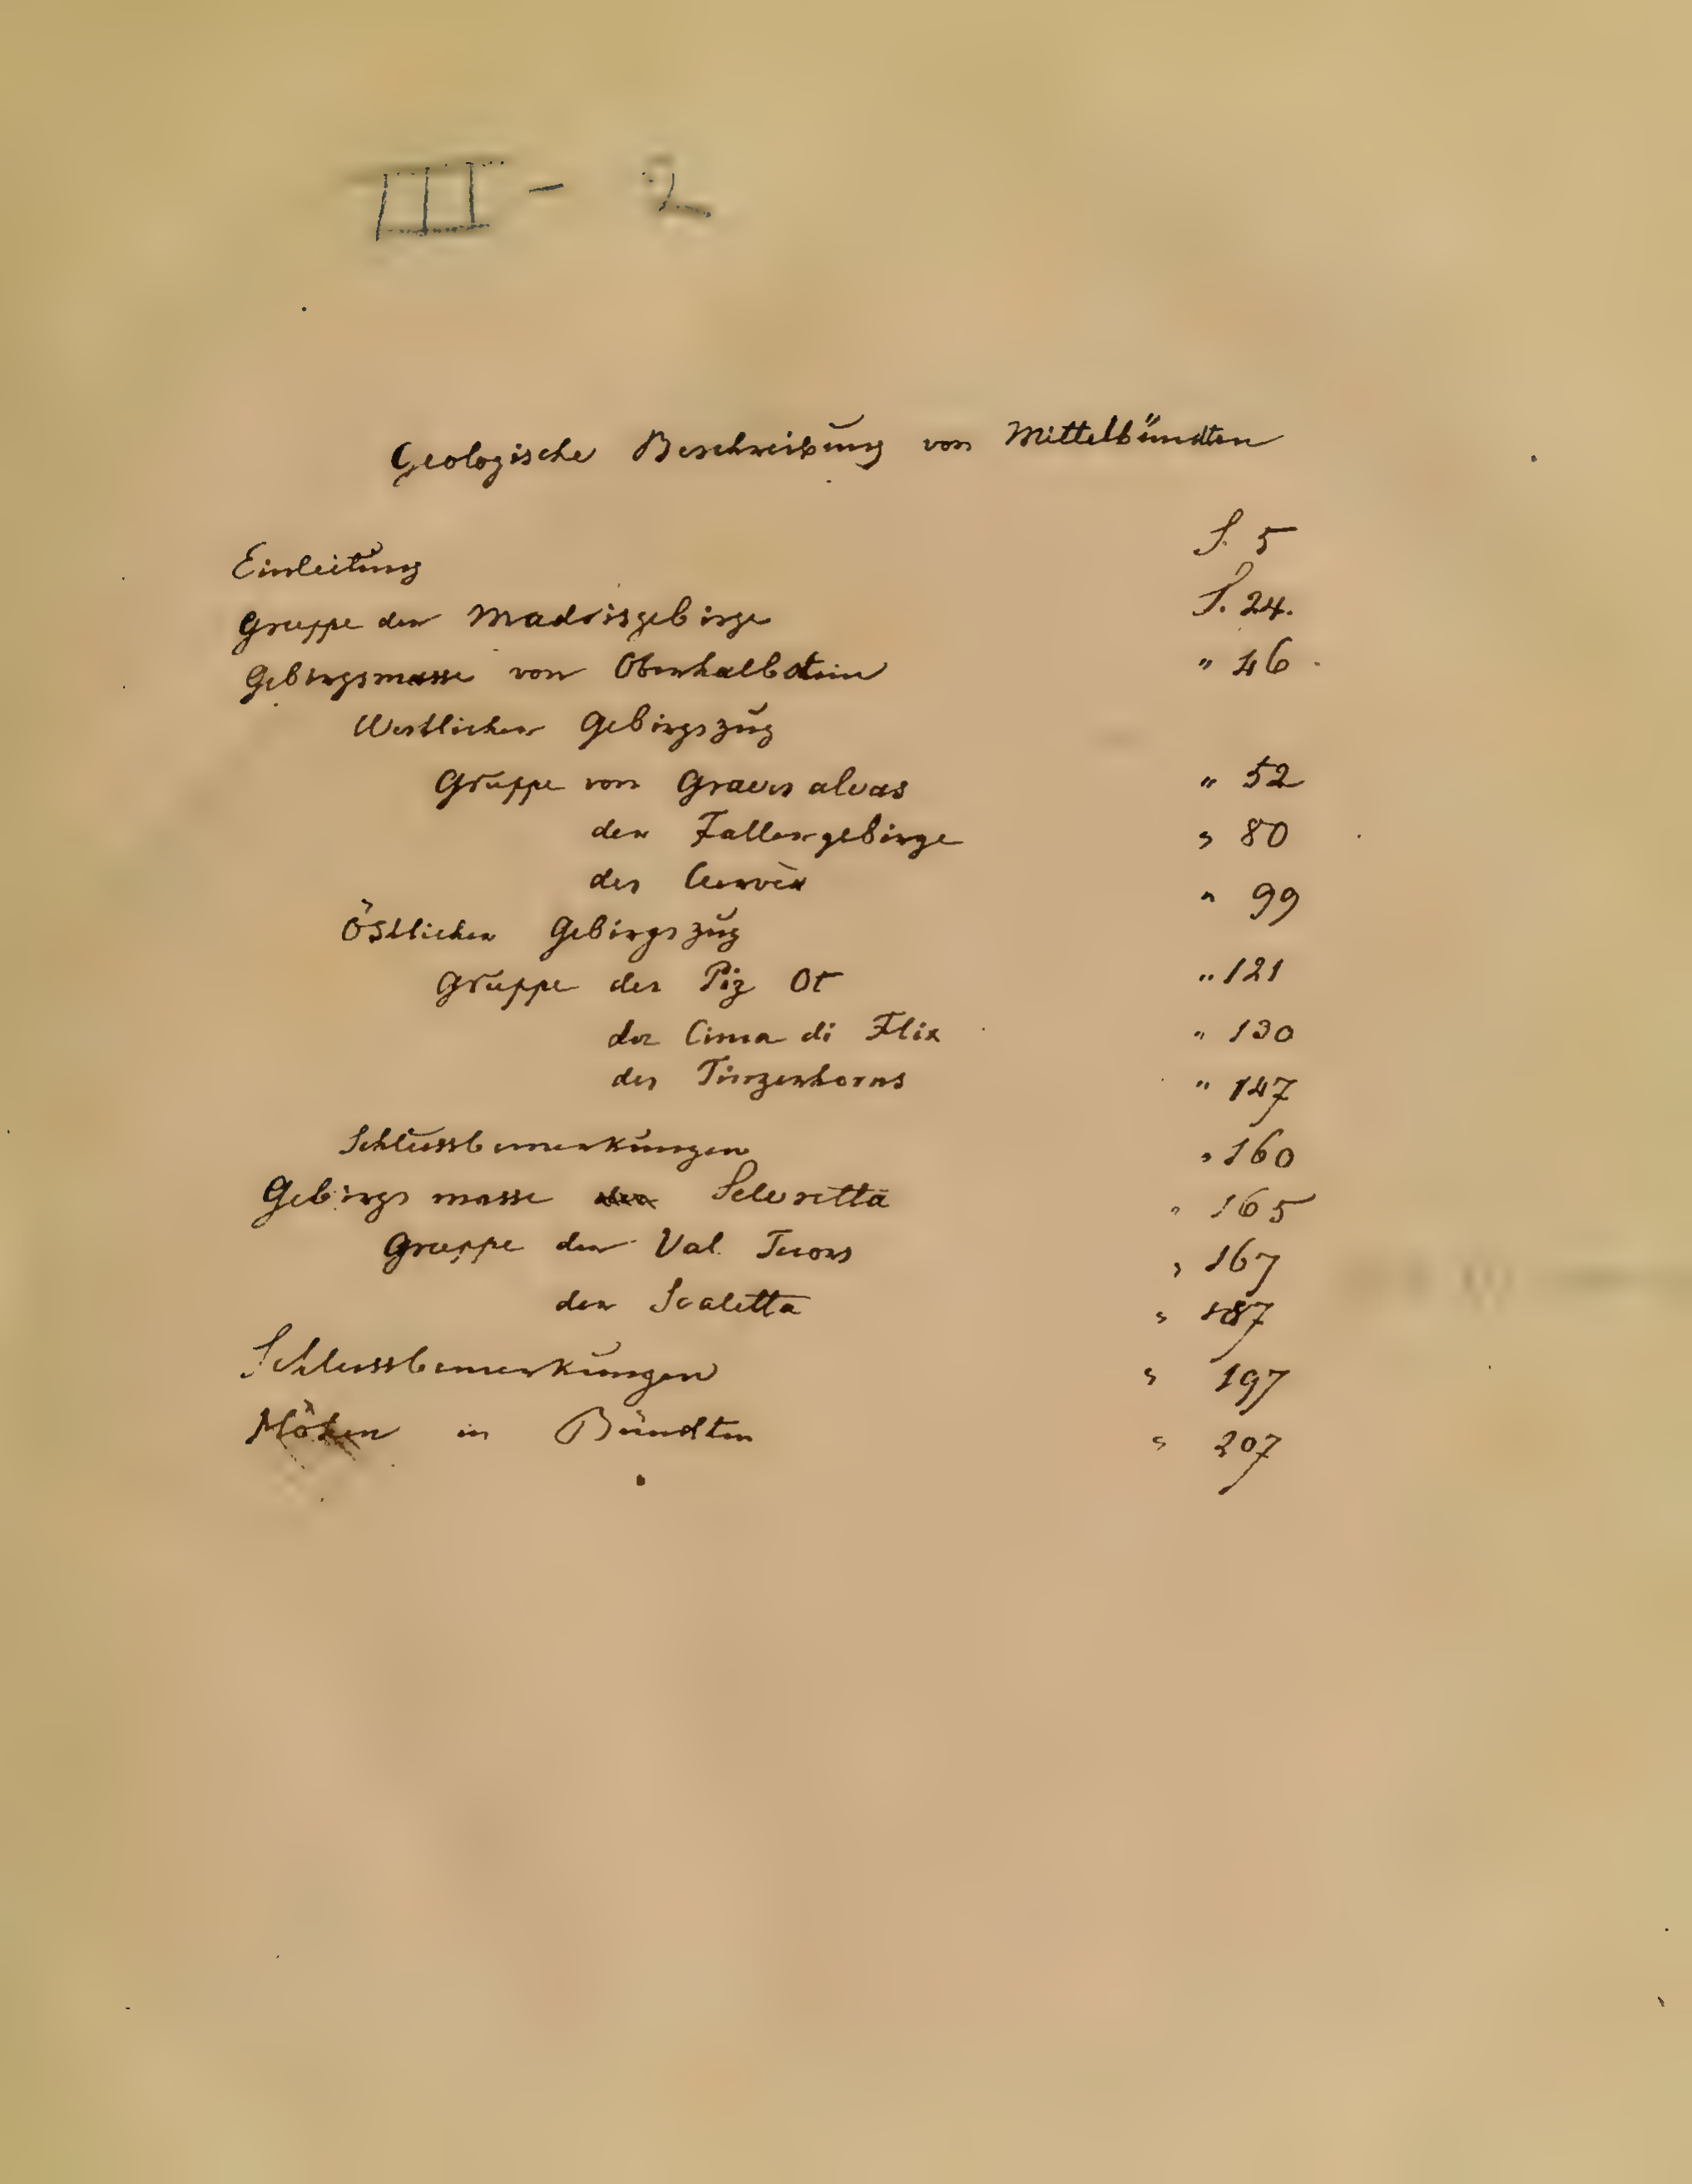 III - 2
Geologische Beschreibung von Mittelbündten
Einleitung S. 5
Gruppe der Madrisgebirge S. 24.
Gebirgsmasse von Oberhalbstein " 46
Westlicher Gebirgszug
Gruppe von Graves alvas " 52
der Fallergebirge " 80
des Curvèr " 99
Östlicher Gebirgszug
Gruppe des Piz Ot " 121
der Cima di Flix " 130
des Tinzenhorns " 147
Schlussbemerkungen " 160
Gebirgsmasse der Selvretta " 165
Gruppe der Val Tuors " 167
der Scaletta " 187
Schlussbemerkungen " 197
Höhen in Bündten " 207